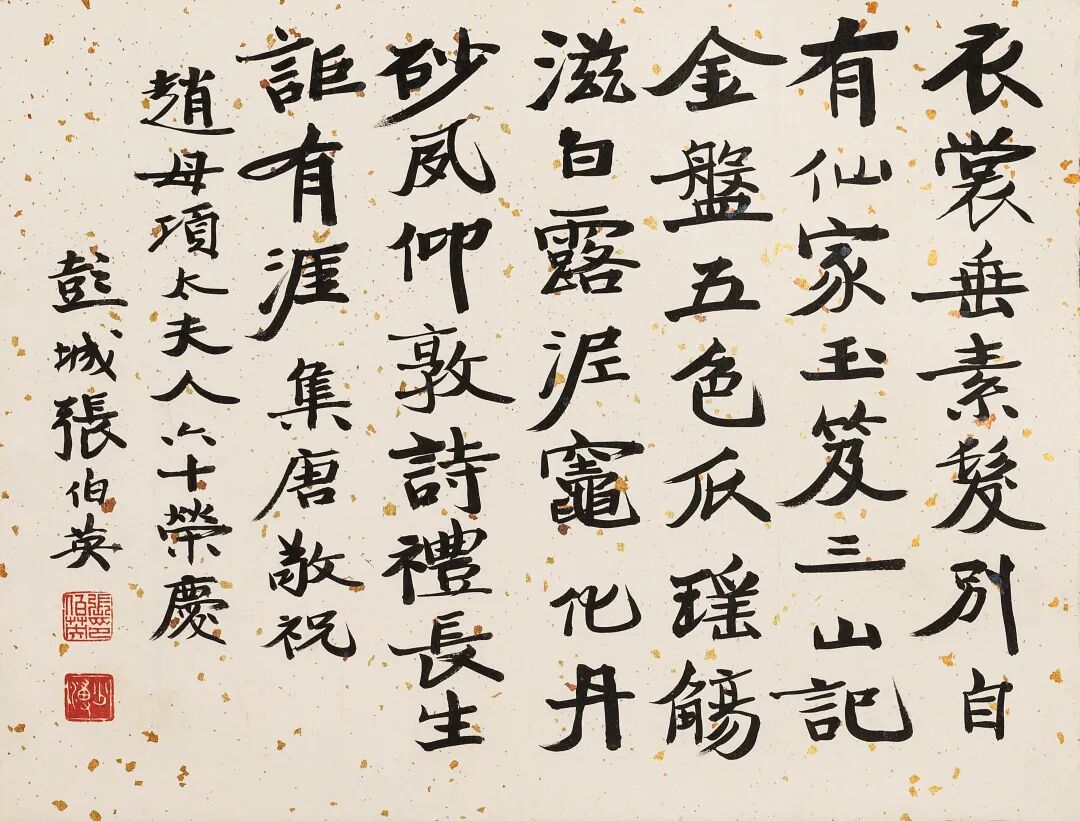 衣裳垂素髮別自
有仙家玉笈三山記
金盤五色瓜瑤觴
滋白露泥竈化丹
砂夙仰敦詩禮長生
詎有涯集唐敬祝
趙母項太夫人六十榮慶
彭城張伯英
張伯英印
少溥